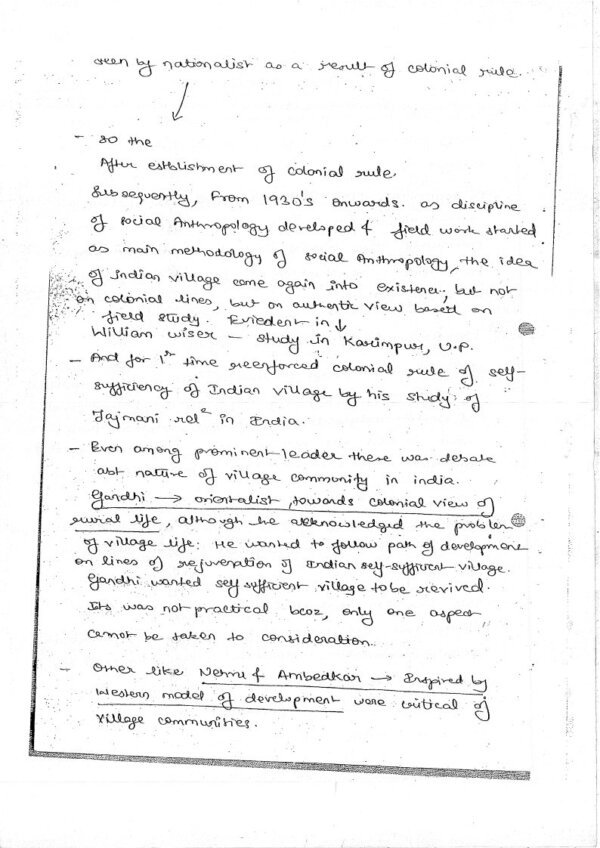 seen by nationalist as a result of colonial rule.
- so the
After estblishment of colonial rule.
Subsequently, From 1930's onwards. as discipline
of social Anthropology developed & field work started
as main methodology of social Anthropology, the idea
of Indian village came again into existence, but not
on colonial lines, but on authentic view based on
field study. Eviedent in ↓
William wiser - study in Karimpur, U.P.
- And for 1st time reenforced colonial rule of self-
sufficiency of Indian village by his study of
Jajmani reln in India.
- Even among prominent leader there was debate
abt nature of village community in india.
Gandhi → orientalist, towards colonial view of
rural life, although he acknowledged the problem
of village life. He wanted to follow path of development
on lines of rejuvenation of Indian self-sufficient village.
Gandhi wanted self sufficient village to be revived.
Its was not practical bcoz, only one aspect
cannot be taken to consideration.
- Other like Nehru & Ambedkar → Inspired by
Western model of development were critical of
village communities.